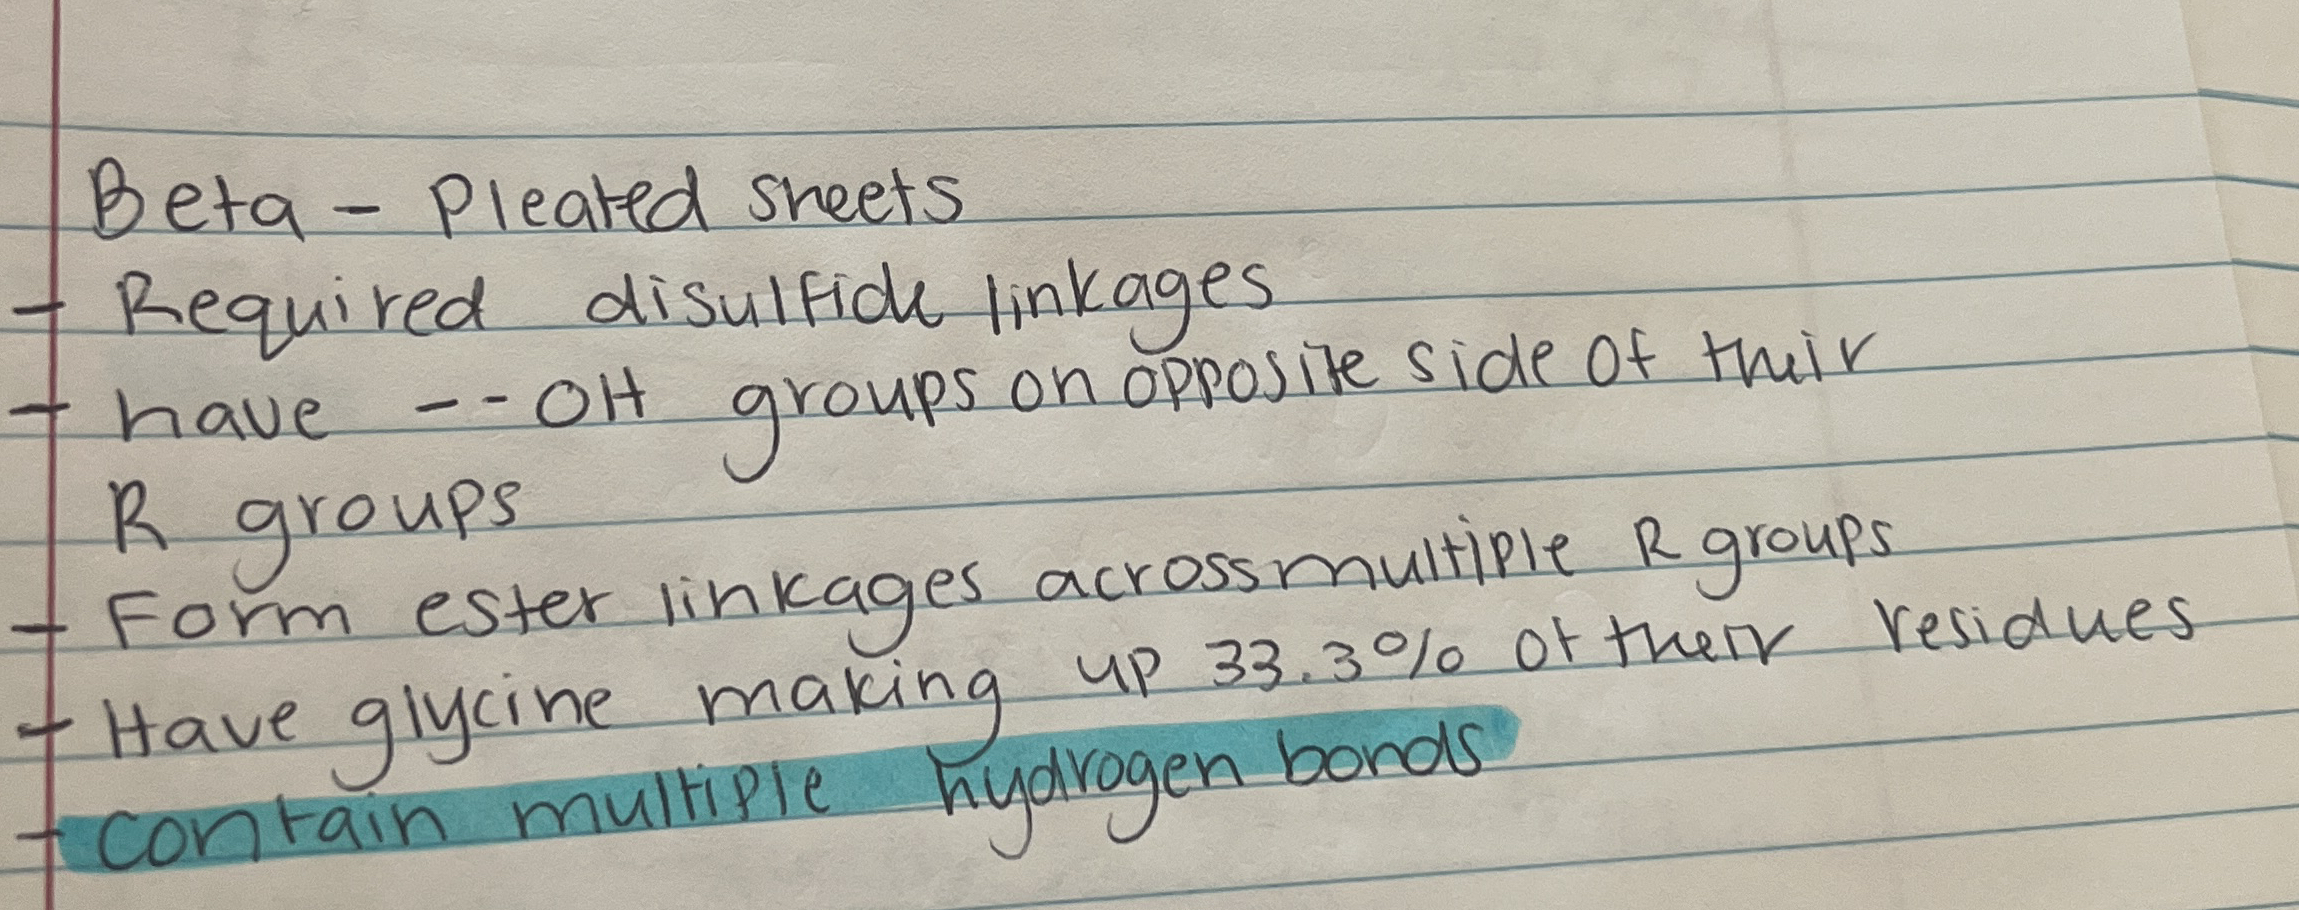 Beta - Pleated sheets
- Required disulfide linkages
- have --OH groups on opposite side of their
R groups
- Form ester linkages across multiple R groups
- Have glycine making up 33.3% of their residues
- contain multiple hydrogen bonds